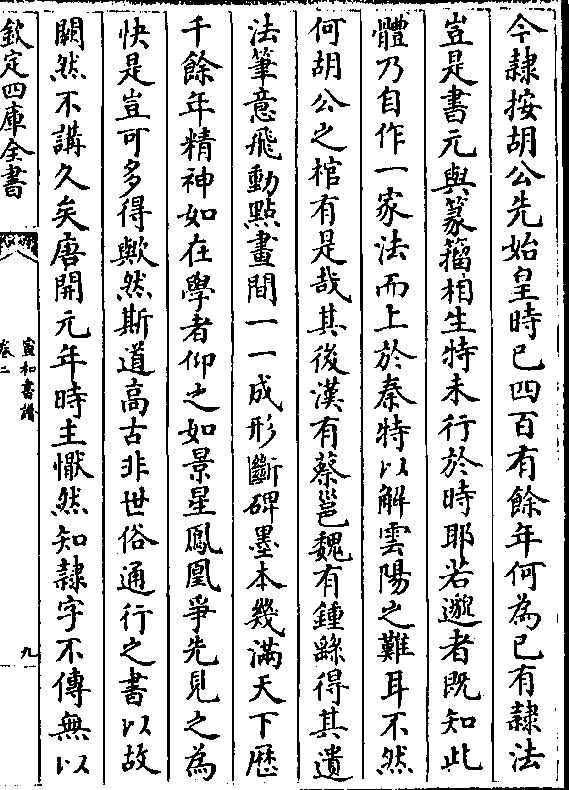 今隸按胡公先始皇時已四百有餘年何為已有隸法
豈是書元與篆籀相生特未行於時耶若邈者既知此
體乃自作一家法而上於秦特以解雲陽之難耳不然
何胡公之棺有是哉其後漢有蔡邕魏有鍾繇得其遺
法筆意飛動點畫間一一成形斷碑墨本幾滿天下歴
千餘年精神如在學者仰之如景星鳳凰爭先見之為
快是豈可多得歟然斯道高古非世俗通行之書以故
闕然不講久矣唐開元年時主慨然知隸字不傳無以
欽定四庫全書
宣和書譜
卷二
九